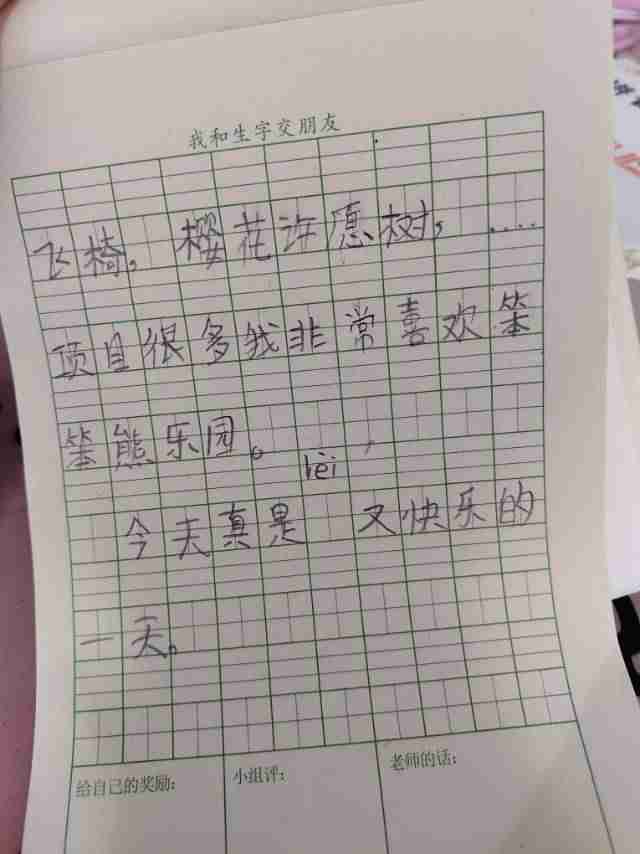 我和生字交朋友
飞椅，樱花许愿树，……
项目很多我非常喜欢笨
笨熊乐园。
lèi
今天真是 又快乐的
一天。
给自己的奖励：
小组评：
老师的话：